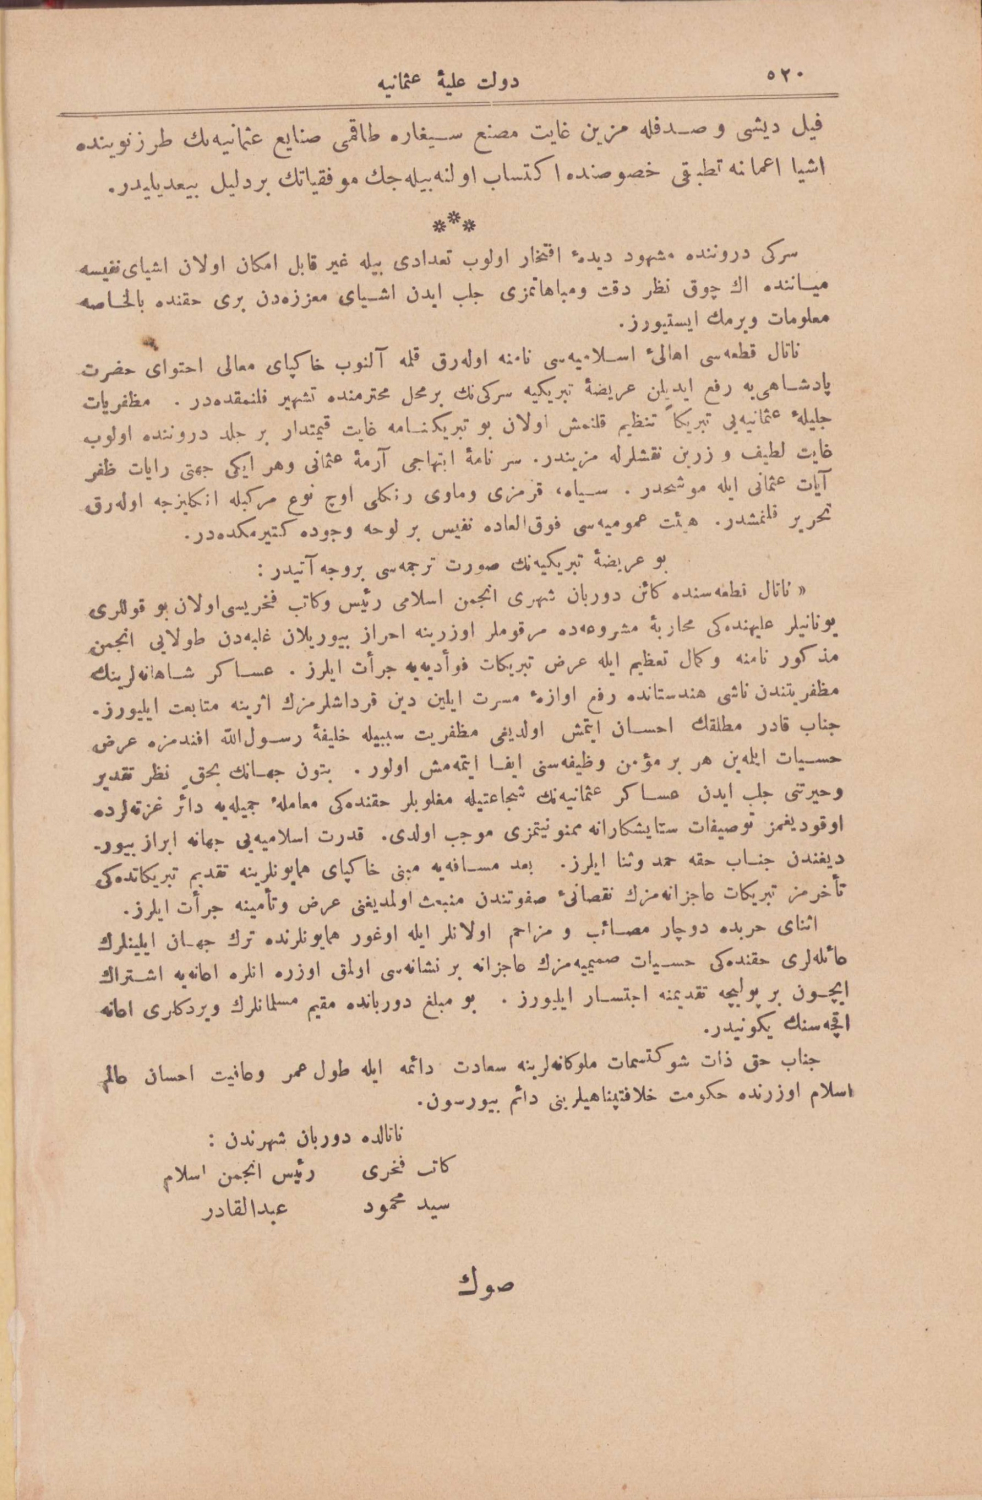 ٥٢٠
دولت عليۀ عثمانيه
فيل ديشى و صدفله مزين غايت مصنع سيغاره طاقمى صنايع عثمانيه‌نك طرز نوينده
اشيا اعمالنه تطبيقى خصوصنده اكتساب اولنه‌بيله‌جك موفقياتك بر دليل بيعديليدر.
***
سركى دروننده مشهود ديدۀ افتخار اولوب تعدادى بيله غير قابل امكان اولان اشياى نفيسه
مياننده اك چوق نظر دقت ومباهاتمزى جلب ايدن اشياى معززه‌دن برى حقنده بالخاصه
معلومات ويرمك ايستيورز.
ناتال قطعه‌سى اهالئ اسلاميه‌سى نامنه اوله‌رق قلمه آلنوب خاكپاى معالى احتواى حضرت
پادشاهى‌يه رفع ايديلن عريضۀ تبريكيه سركى‌نك بر محل محترمنده تشهير قلنمقده‌در. مظفريات
جليلۀ عثمانيه‌يى تبريكاً تنظيم قلنمش اولان بو تبريكنامه غايت قيمتدار بر جلد دروننده اولوب
غايت لطيف و زرين نقشلرله مزيندر. سر نامۀ ابتهاجى آرمۀ عثمانى وهر ايكى جهتى رايات ظفر
آيات عثمانى ايله موشحدر. سياه، قرمزى وماوى رنكلى اوچ نوع مركبله انكليزجه اوله‌رق
تحرير قلنمشدر. هيئت عموميه‌سى فوق‌العاده نفيس بر لوحه وجوده كتيرمكده‌در.
بو عريضۀ تبريكيه‌نك صورت ترجمه‌سى بروجه آتيدر:
« ناتال قطعه‌سنده كائن دوربان شهرى انجمن اسلامى رئيس وكاتب فخريسى اولان بو قوللرى
يونانيلر عليهنده‌كى محاربۀ مشروعه‌ده مرقوملر اوزرينه احراز بيوريلان غلبه‌دن طولايى انجمن
مذكور نامنه وكمال تعظيم ايله عرض تبريكات فؤاديه‌يه جرأت ايلرز. عساكر شاهانه‌لرينك
مظفريتندن ناشى هندستانده رفع اوازۀ مسرت ايلين دين قرداشلرمزك اثرينه متابعت ايليورز.
جناب قادر مطلقك احسان ايتمش اولديغى مظفريت سببيله خليفۀ رسول‌الله افندمزه عرض
حسيات ايله‌ين هر بر مؤمن وظيفه‌سنى ايفا ايتمه‌مش اولور. بتون جهانك بحقٍ نظر تقدير
وحيرتنى جلب ايدن عساكر عثمانيه‌نك شجاعتيله مغلوبلر حقنده‌كى معاملۀ جميله‌يه دائر غزته‌لرده
اوقوديغمز توصيفات ستايشكارانه ممنونيتمزى موجب اولدى. قدرت اسلاميه‌يى جهانه ابراز بيور-
ديغندن جناب حقه حمد وثنا ايلرز. بعد مسافه‌يه مبنى خاكپاى همايونلرينه تقديم تبريكاتده‌كى
تأخرمز تبريكات عاجزانه‌مزك نقصانئ صفوتندن منبعث اولمديغنى عرض وتأمينه جرأت ايلرز.
اثناى حربده دوچار مصائب و مزاحم اولانلر ايله اوغور همايونلرنده ترك جهان ايلينلرك
عائله‌لرى حقنده‌كى حسيات صميميه‌مزك عاجزانه بر نشانه‌سى اولمق اوزره انلره اعانه‌يه اشتراك
ايچون بر پوليچه تقديمنه اجتسار ايليورز. بو مبلغ دوربانده مقيم مسلمانلرك ويردكلرى اعانه
اقچه‌سنك يكونيدر.
جناب حق ذات شوكتسمات ملوكانه‌لرينه سعادت دائمه ايله طول عمر وعافيت احسان عالم
اسلام اوزرنده حكومت خلافتپناهيلرينى دائم بيورسون.
ناتالده دوربان شهرندن:
كاتب فخرى رئيس انجمن اسلام
سيد محمود عبدالقادر
صوك